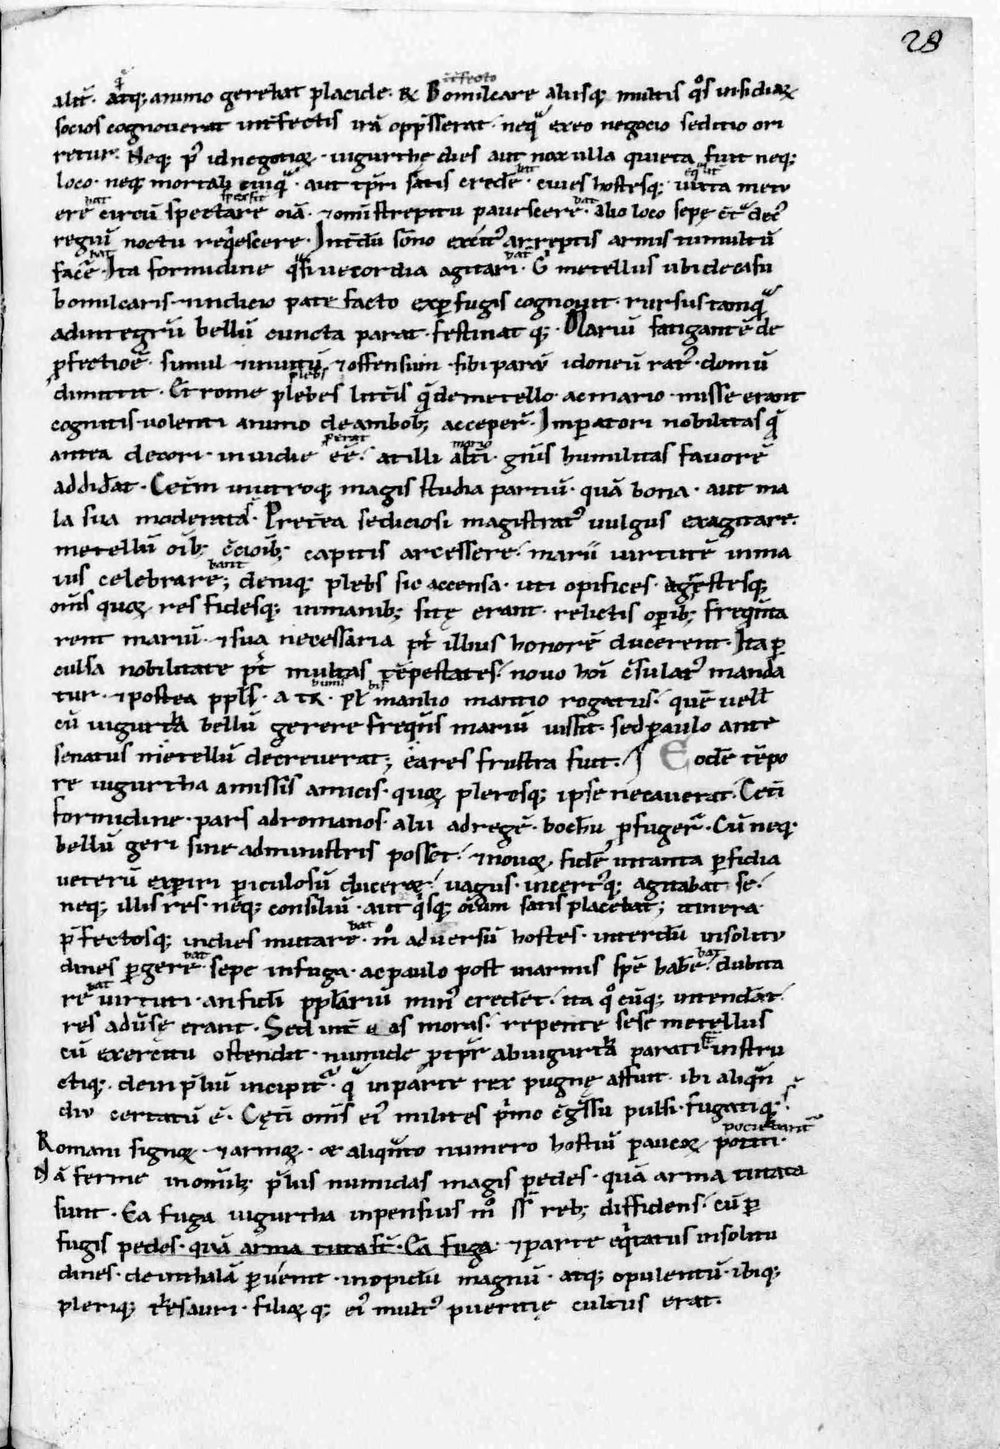 28
alit᷑. atq; animo gerebat placide. & Bomilcare aliisq; multis q̊s insidiaꝝ
socios cognouerat int̄fectis irā opp̄sserat. neq; ex eo negocio seditio ori
retur. Neq; p̄ id negotiū. iugurthe dies aut nox ulla quieta fuit neq;
loco. neq; mortali cuiq̄. aut tp̄ri satis credē. ciues hostesq; iuxta metu
ere circū spectare oīa. & omī strepitu pauescere. alio loco sepę ct̄ dec̄
regiū noctu reqescere. Int̄dū sōno excit᷒ arreptis armis tumultū
facē. Ita formidine q̄si uecordia agitari. Ġ metellus ubi de casu
bomilcaris & indicio patefacto ex perfugis cognouit. rursus tamq̄
ad integrū bellū cuncta parat. festinatq;. Mariū fatigantē de
p̄fectiōe. simul & inuitū & offensum sibi parū idoneū rat᷒. domū
dimittit. Et rome plebes litt̄is q̄ de metello. ac mario. misse erant
cognitis. uolenti animo de ambob; acceper̄. Imperatori nobilitas q̄
antea decori. inuidie eē. at illi alt̄i. gn̄is humilitas fauorē
addid̄at. Cet̄m in utroq; magis studia partiū. quā bona. aut ma
la sua moderata. Pret̄ea sediciosi magistrat᷒ uulgus exagitare.
metellū oīb; c̄cioīb; capitis arcessere. marii uirtutē in ma
ius celebrare; deniq; plebs sic accensa. uti opifices. agrestesq;
om̄s quoꝝ res fidesq; in manib; sitę erant. relictis opib; freqūta
rent mariū. & sua necessaria p̄t illius honorē ducerent. Ita per
culsa nobilitate p̄t multas tēpestates. nouo hoī c̄sulat᷒ manda
tur. & postea ppl̄s. a tr̄. pl̄ manlio mantio rogatus. quē uell̄
cū iugurta bellū gerere freqn̄s mariū iussit. sed paulo ante
senatus metellū decreuerat; ea res frustra fuit. Eodē tēpo
re iugurtha amissis amicis. quoꝝ plerosq; ipse necauerat. Cet̄i
formidine. pars ad romanos. alii ad regē. bochū p̄fuger̄. Cū neq;
bellū geri sine administris posset. & nouoꝝ fidē in tanta perfidia
ueterū experiri periculosū duceret. uagus. incert᷒q; agitabat se.
neq; illi res. neq; consiliū. aut q̄sq; oīum satis placebat; itinera
p̄fectosq; in dies mutare. m̊ aduersū hostes. interdū in solitu
dines pergere. sepe in fuga. ac paulo post in armis spē habē. dubita
re uirtuti. an fidei ppl̄ariū min᷒ crederet. ita q̊cūq; intend̄at.
res aduersę erant. Sed int̄ eas moras. repente sese metellus
cū exercitu ostendit. numide ptp̄r ab iugurta parati instru
ctiq;. dein p̄liū incipit᷑. q̄ in parte rex pugnę affuit. ibi aliqn̄
diu certatū ē. Cęt̄i om̄s ei᷒ milites p̄mo c̄g̃ssu pulsi. fugatiq;.
Romani signoꝝ & armoꝝ. & aliqn̄to numero hostiū paucoꝝ potiti.
Nā ferme in omīb; p̄liis numidas magis pedes. quā arma tutata
sunt. Ea fuga iugurtha inpensius m̊ s̄s reb; diffidens. cū per
fugis pedes. quā arma tuta st̄. Ea fuga. & parte eq̄tatus in solitu
dines. dein thalā peruenit. in opidū magnū. atq; opulentū. ibiq;
pleriq; thesauri. filioꝝq; ei᷒ mult᷒ pueritię cultus erat.